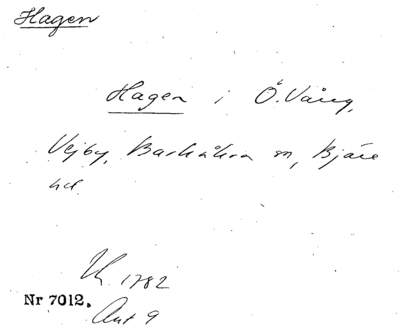 Hagen
Hagen i Ö. Vång,
Vejby, Barkåkra sn, Bjäre
hd
1782
Nr 7012.
Akt 9